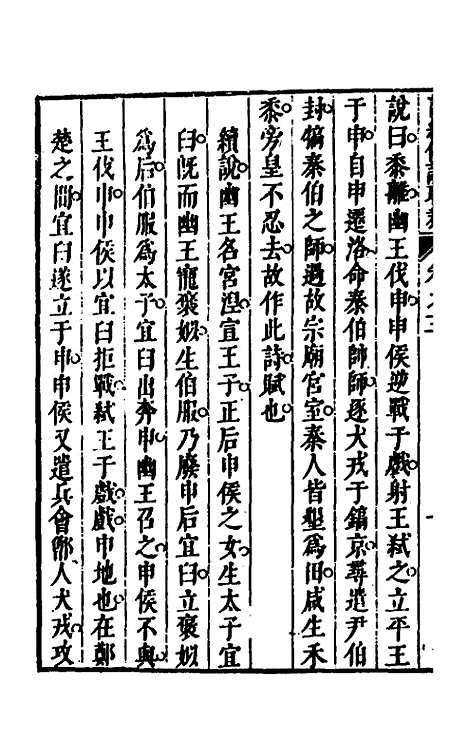 說曰黍離幽王伐申申侯逆戰于戲射王弑之立平王
于申自申遷洛命秦伯帥師逐犬戎于鎬京尋遣尹伯
封犒秦伯之師過故宗廟宮室秦人皆墾爲田咸生禾
黍旁皇不忍去故作此詩賦也
續說幽王名宮湼宣王子正后申侯之女生太子宜
臼既而幽王寵褒姒生伯服乃廢申后宜臼立褒姒
爲后伯服爲太子宜臼出奔申幽王召之申侯不與
王伐申申侯以宜臼拒戰弑王于戲戲申地也在鄭
楚之間宜臼遂立于申申侯又遣兵會鄫人犬戎攻